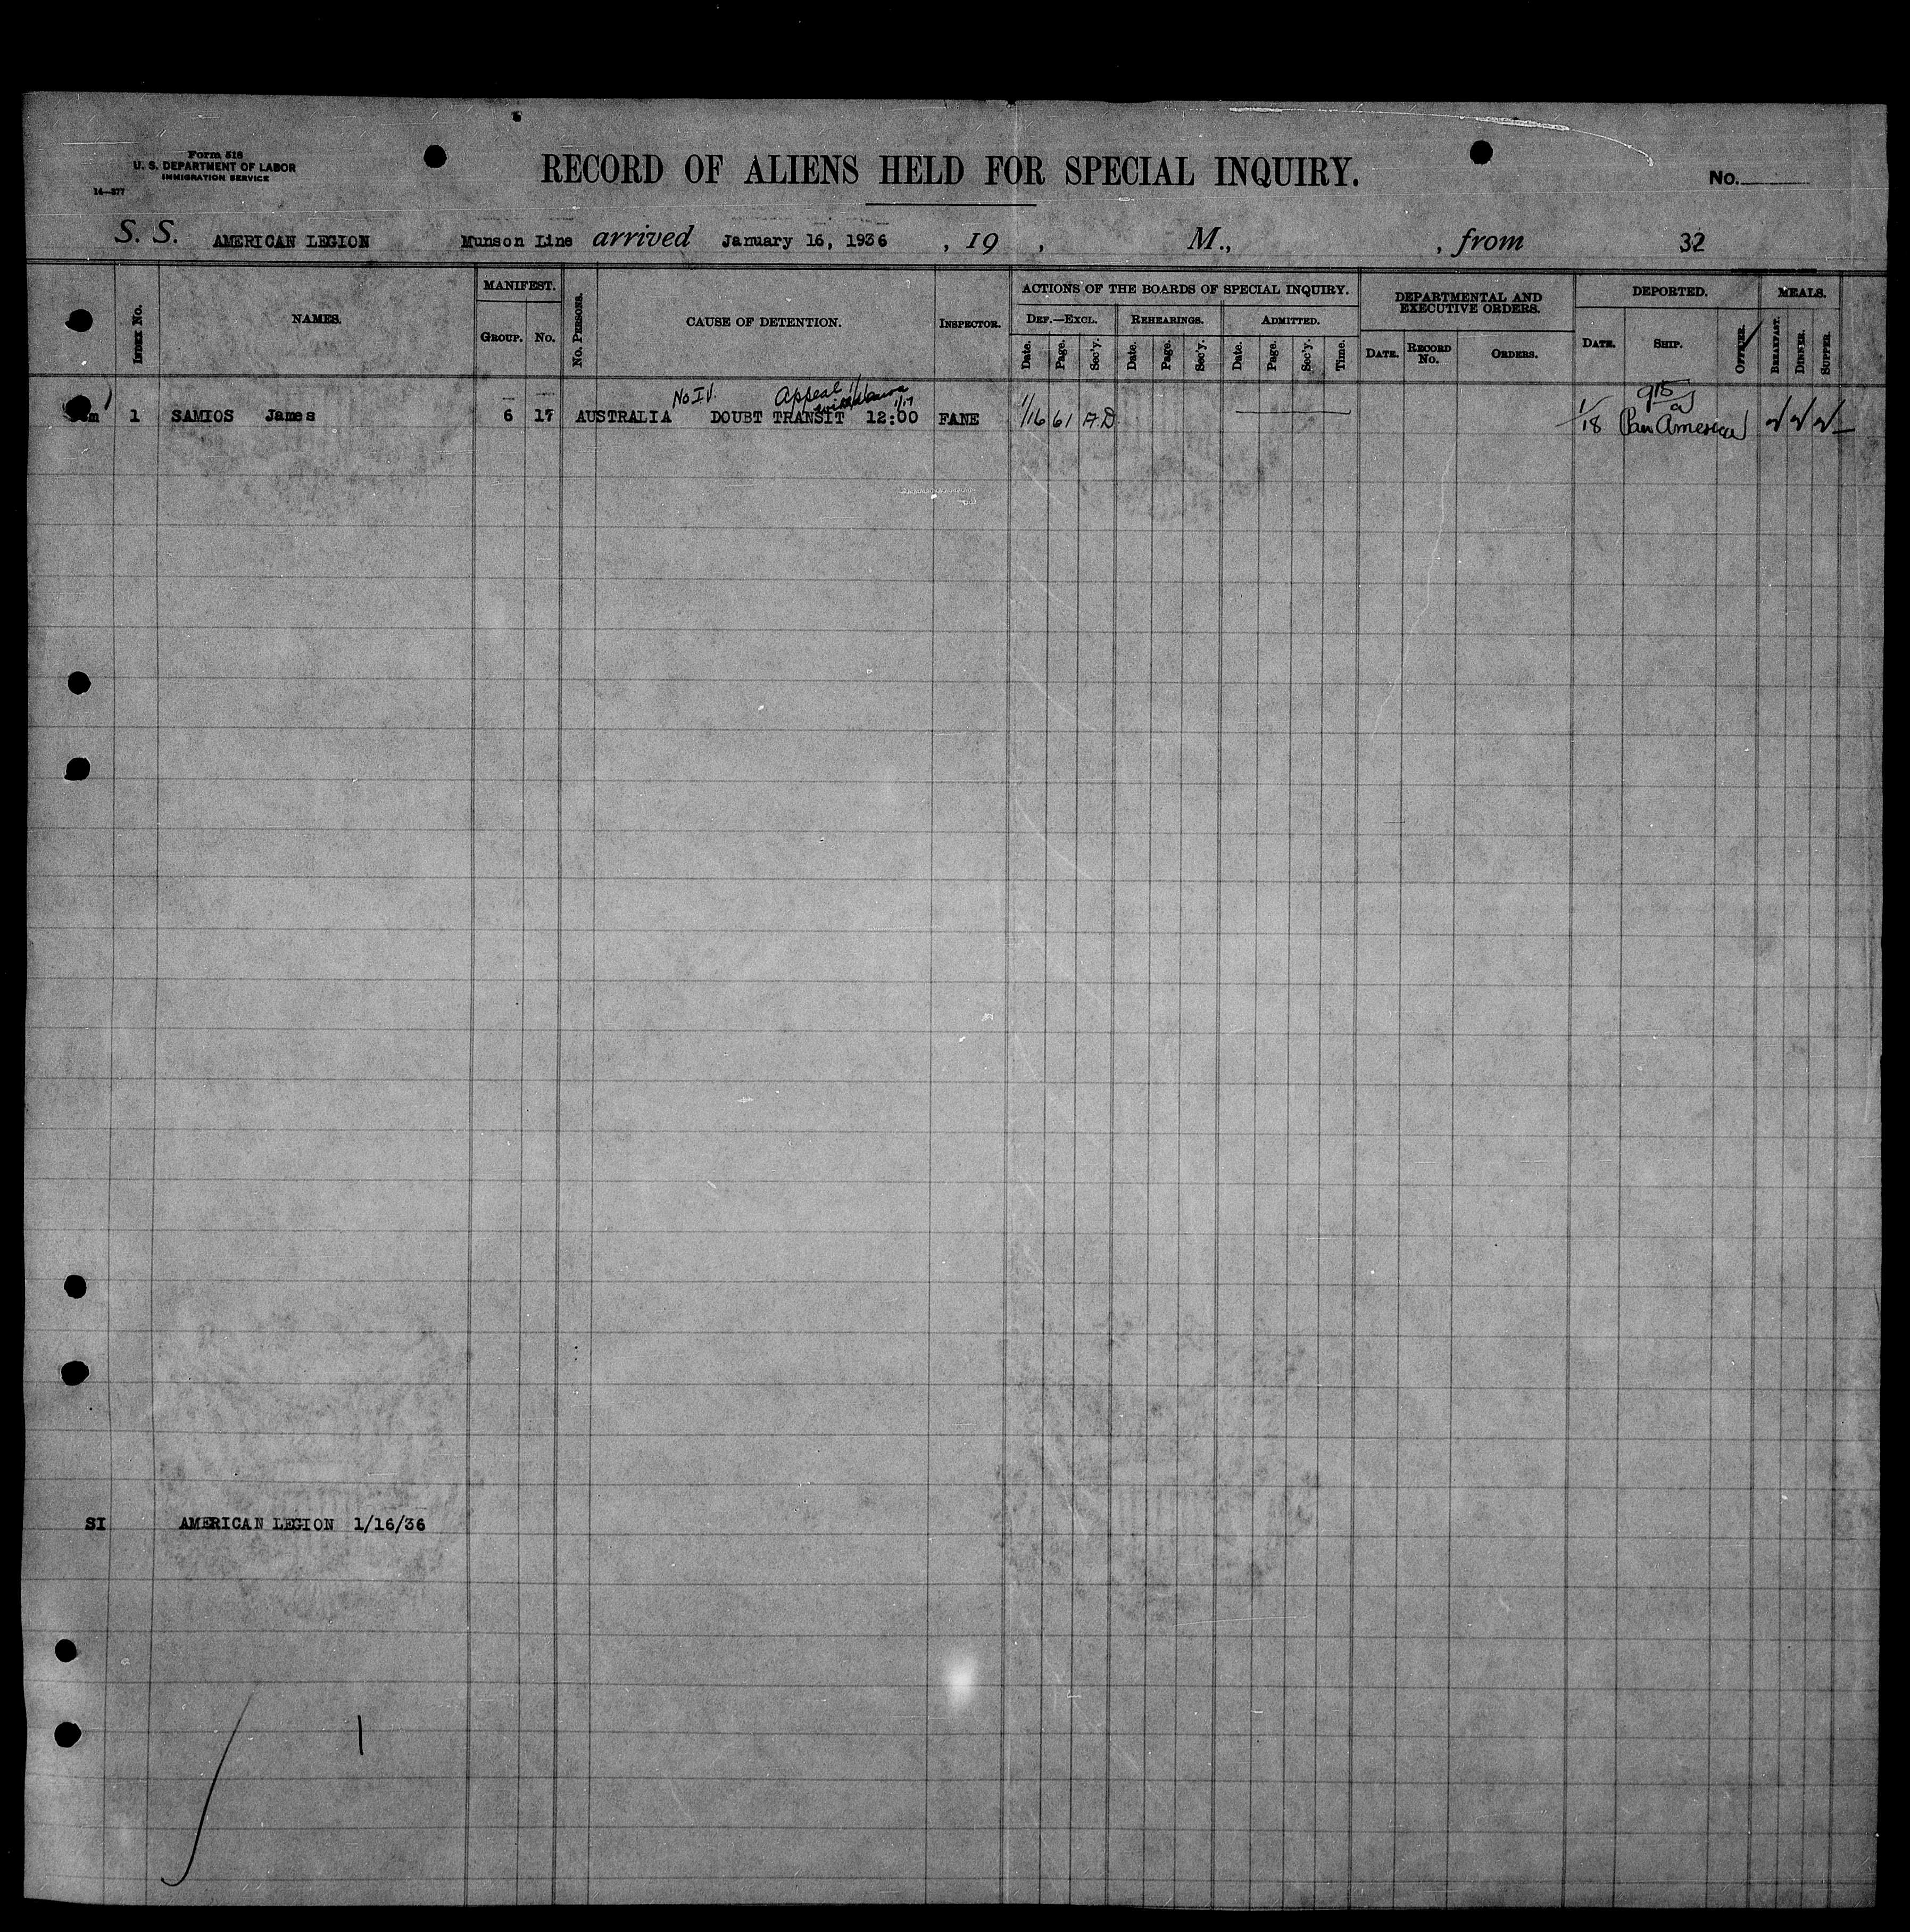 Form 518
U. S. DEPARTMENT OF LABOR
IMMIGRATION SERVICE
14—377
RECORD OF ALIENS HELD FOR SPECIAL INQUIRY.
No.
S. S. AMERICAN LEGION Munson Line arrived January 16, 1936 , 19 , M., , from 32
INDEX No. NAMES. MANIFEST. GROUP. No. No. PERSONS. CAUSE OF DETENTION. INSPECTOR. ACTIONS OF THE BOARDS OF SPECIAL INQUIRY. DEF.—EXCL. Date. Page. Sec'y. REHEARINGS. Date. Page. Sec'y. ADMITTED. Date. Page. Sec'y. Time. DEPARTMENTAL AND EXECUTIVE ORDERS. DATE. RECORD No. ORDERS. DEPORTED. DATE. SHIP. OFFICER. MEALS. BREAKFAST. DINNER. SUPPER.
No I.V. Appeal withdrawn 1/17 915 a
1 SAMIOS James 6 17 AUSTRALIA DOUBT TRANSIT 12:00 FANE 1/16 61 A.D 1/18 Pan America
SI AMERICAN LEGION 1/16/36
1